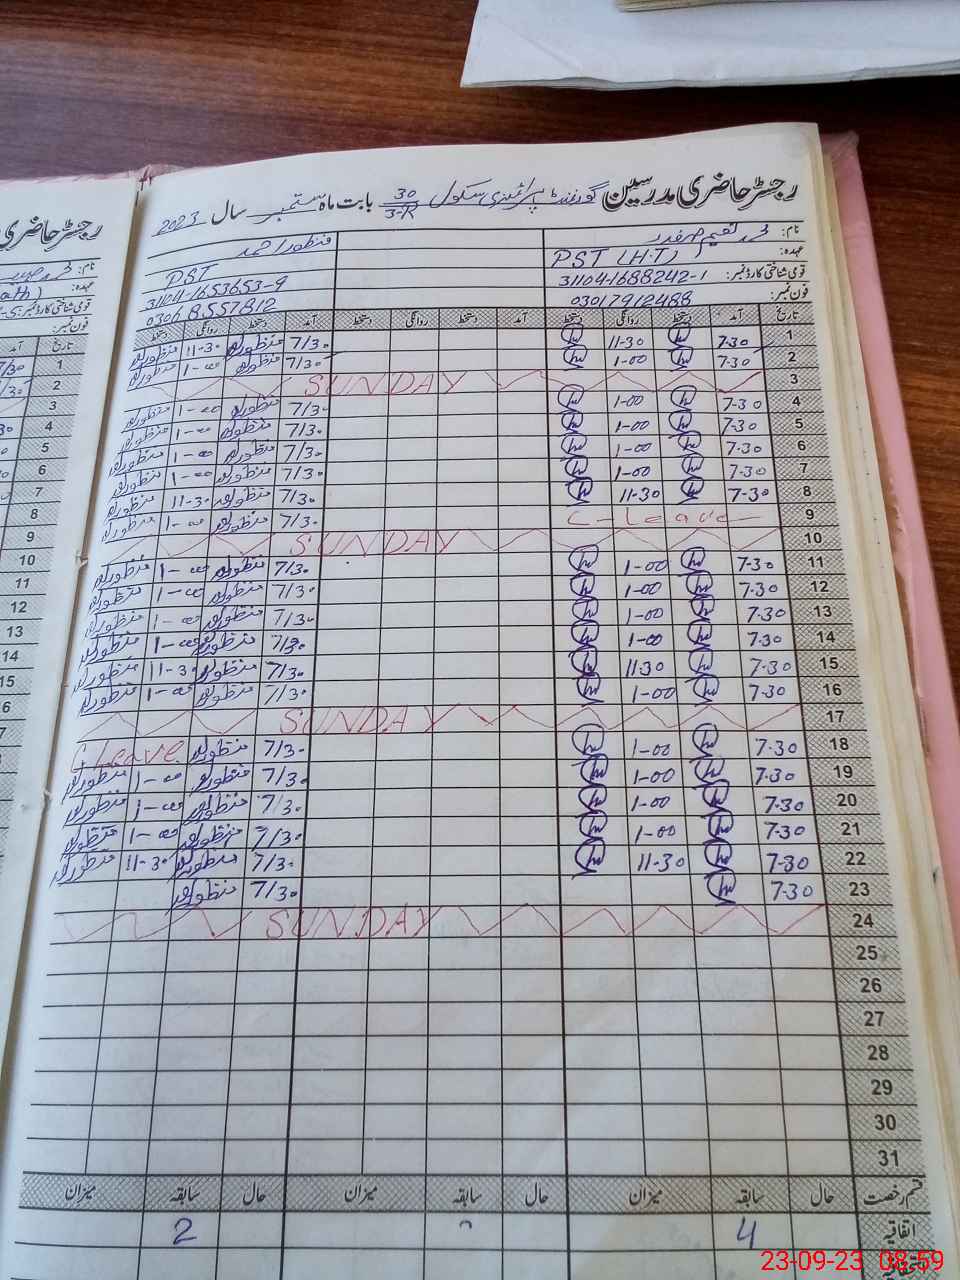 رجسٹر حاضری مدرسین گورنمنٹ پرائمری سکول 30/3-R بابت ماہ ستمبر سال 2023
نام: محمد نعیم صفدر منظور احمد
عہدہ: PST (H.T) PST
قومی شناختی کارڈ نمبر: 31104-1688242-1 31104-1653653-9
فون نمبر: 03017912488 03068557812
تاریخ آمد دستخط روانگی دستخط آمد دستخط روانگی دستخط آمد دستخط روانگی دستخط
1 7-30 11-30 7/30 منظور احمد 11-30 منظور احمد
2 7-30 1-00 7/30 منظور احمد 1-00 منظور احمد
3 SUNDAY
4 7-30 1-00 7/30 منظور احمد 1-00 منظور احمد
5 7-30 1-00 7/30 منظور احمد 1-00 منظور احمد
6 7-30 1-00 7/30 منظور احمد 1-00 منظور احمد
7 7-30 1-00 7/30 منظور احمد 1-00 منظور احمد
8 7-30 11-30 7/30 منظور احمد 11-30 منظور احمد
9 C-Leave 7/30 منظور احمد 1-00 منظور احمد
10 SUNDAY
11 7-30 1-00 7/30 منظور احمد 1-00 منظور احمد
12 7-30 1-00 7/30 منظور احمد 1-00 منظور احمد
13 7-30 1-00 7/30 منظور احمد 1-00 منظور احمد
14 7-30 1-00 7/30 منظور احمد 1-00 منظور احمد
15 7-30 11-30 7/30 منظور احمد 11-30 منظور احمد
16 7-30 1-00 7/30 منظور احمد 1-00 منظور احمد
17 SUNDAY
18 7-30 1-00 7/30 منظور احمد Leave
19 7-30 1-00 7/30 منظور احمد 1-00 منظور احمد
20 7-30 1-00 7/30 منظور احمد 1-00 منظور احمد
21 7-30 1-00 7/30 منظور احمد 1-00 منظور احمد
22 7-30 11-30 7/30 منظور احمد 11-30 منظور احمد
23 7-30 7/30 منظور احمد
24 SUNDAY
25
26
27
28
29
30
31
قسم رخصت حال سابقہ میزان حال سابقہ میزان حال سابقہ میزان
اتفاقیہ 4 2
استحقاقیہ
رجسٹر حاضری
نام:
عہدہ:
قومی شناختی کارڈ نمبر:
فون نمبر:
تاریخ آمد
1 7/30
2
3
4
5
6
7
8
9
10
11
12
13
14
15
23-09-23 08:59